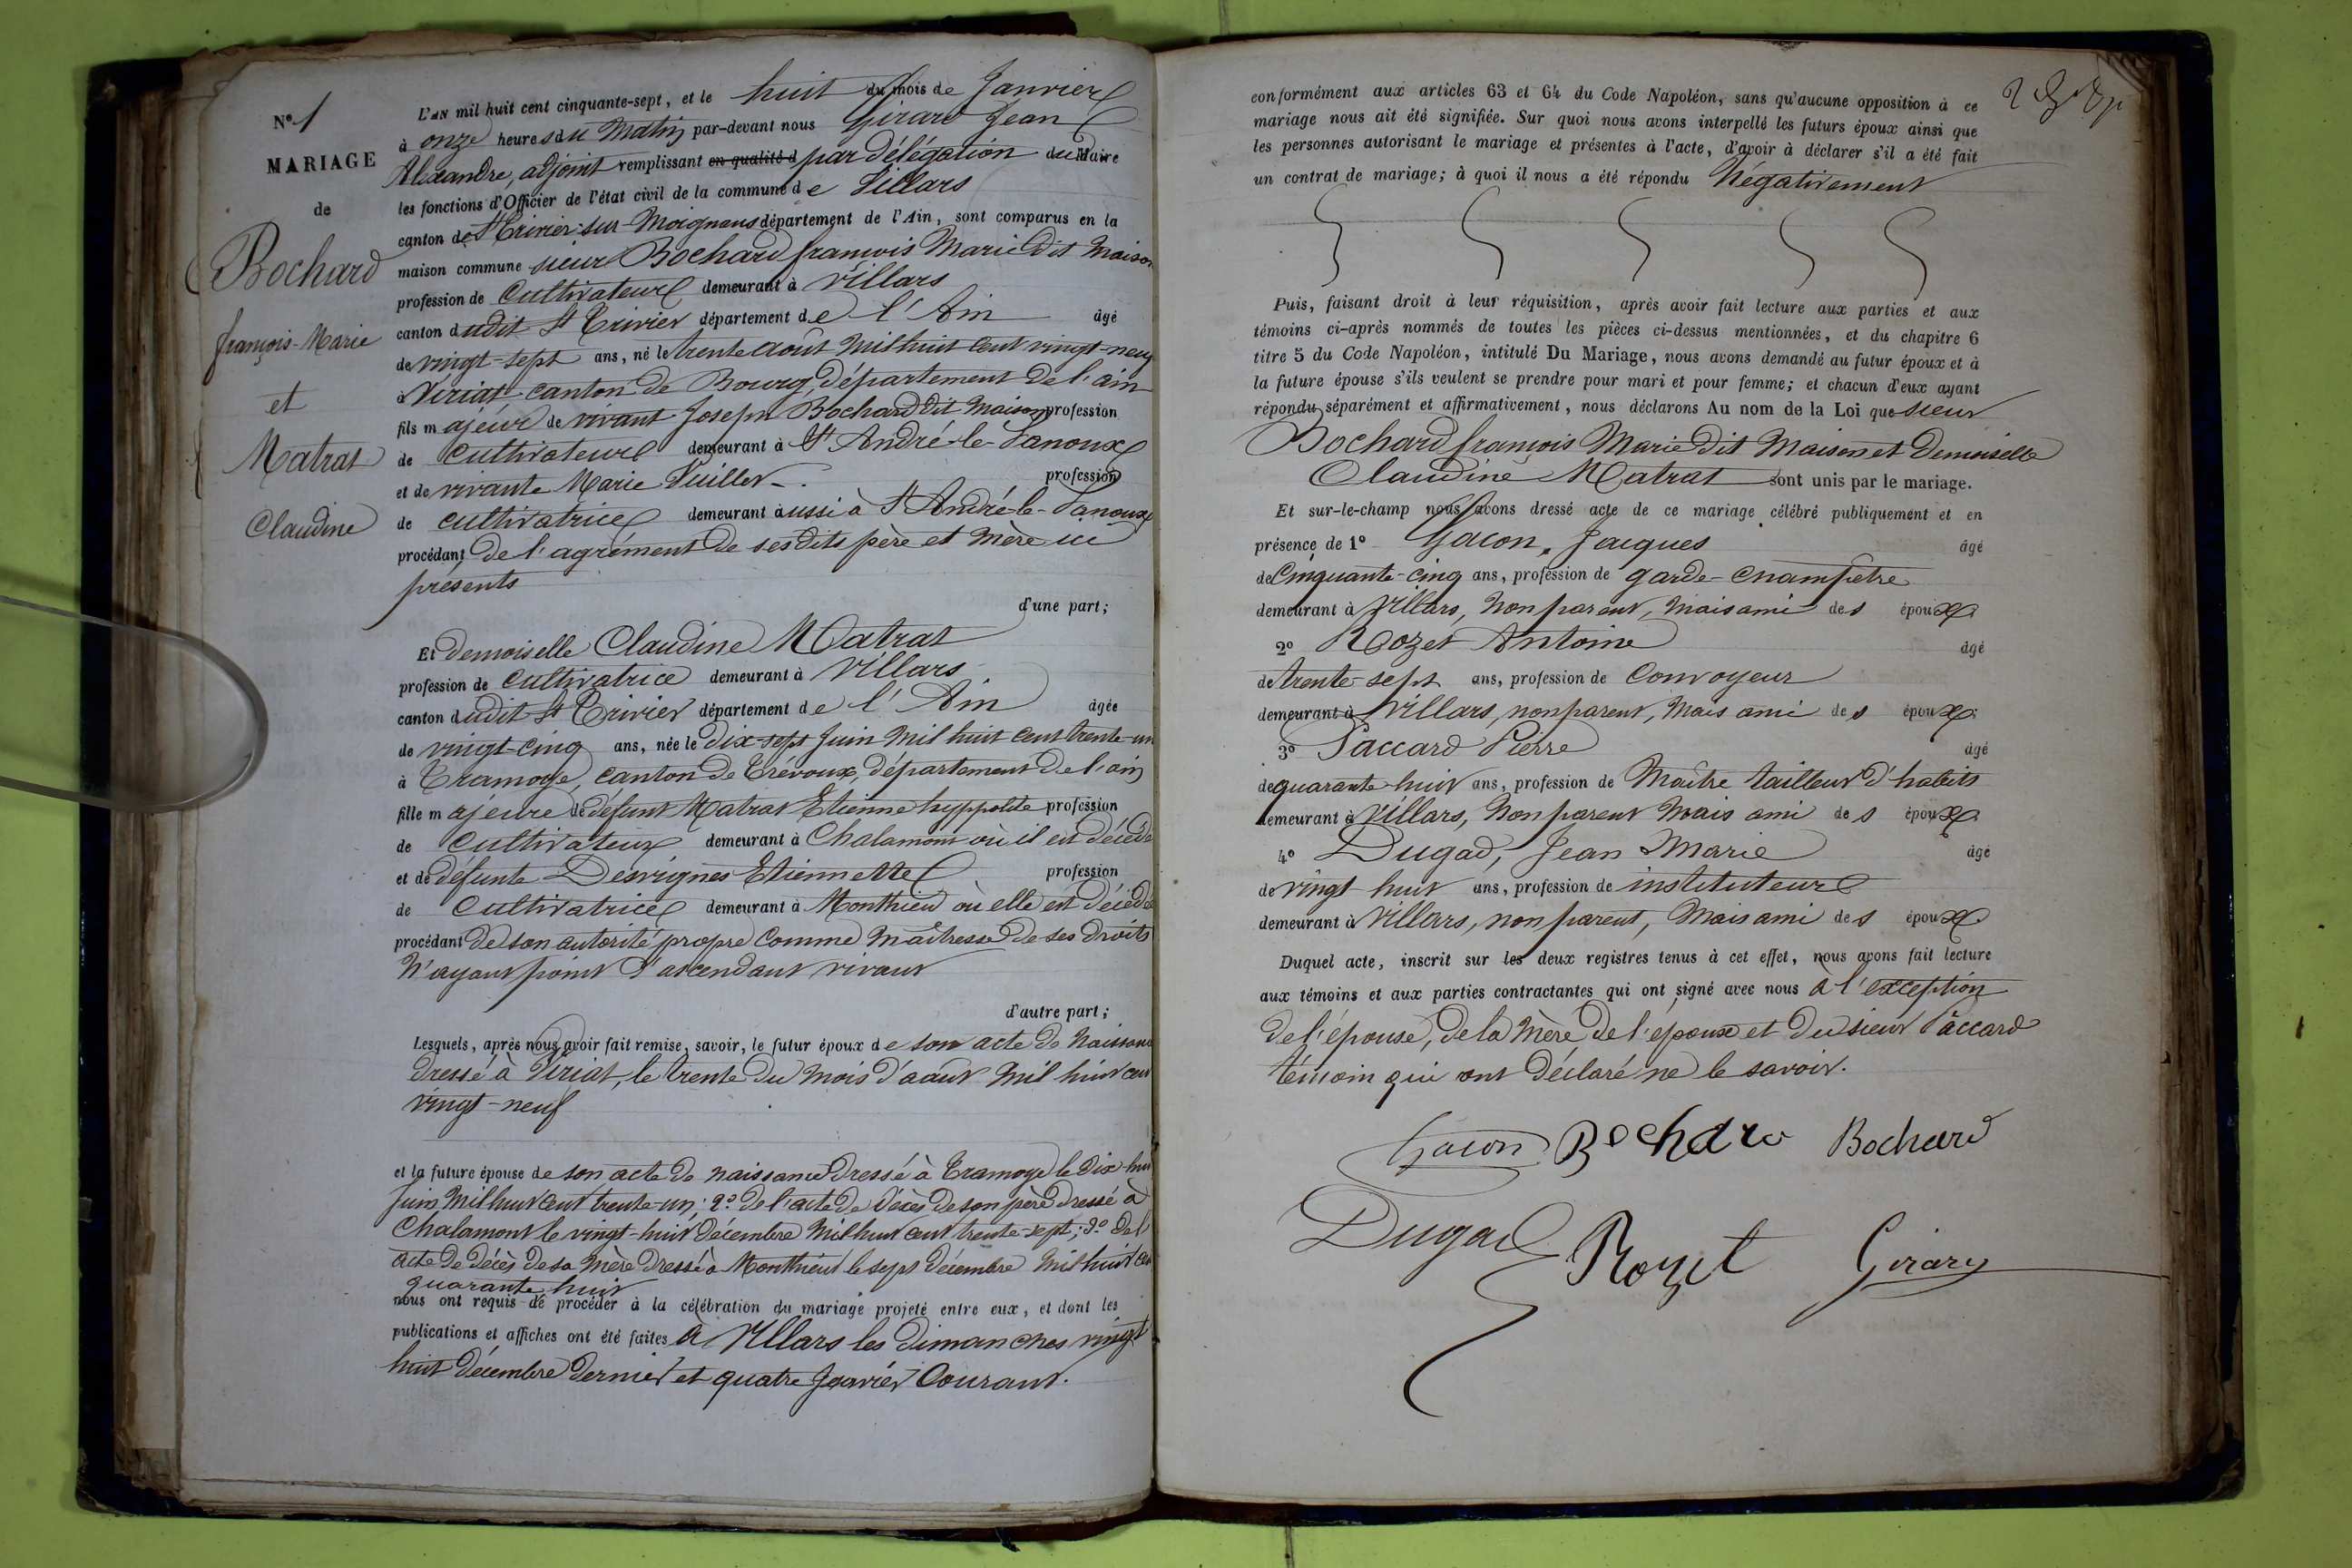 N° 1
MARIAGE
de
Bochard
françois-Marie
et
Matrat
Claudine
L'AN mil huit cent cinquante-sept, et le huit du mois de Janvier
à onze heures du Matin par-devant nous Girard Jean
Alexandre, adjoint remplissant en qualité d par délégation du Maire
les fonctions d'Officier de l'état civil de la commune de Villars
canton de St Trivier-sur-Moignans département de l'Ain, sont comparus en la
maison commune sieur Bochard françois Marie dit Maison
profession de Cultivateur demeurant à Villars
canton dudit St Trivier département de l'Ain âgé
de vingt-sept ans, né le trente août mil huit cent vingt-neuf
à Viriat canton de Bourg, département de l'ain
fils majeur de vivant Joseph Bochard dit Maison profession
de Cultivateur demeurant à St André-le-Panoux
et de vivante Marie Vuiller profession
de cultivatrice demeurant aussi à St André-le-Panoux
procédant de l'agrément de ses dits père et mère ici
présents
d'une part;
Et demoiselle Claudine Matrat
profession de Cultivatrice demeurant à Villars
canton dudit St Trivier département de l'Ain âgée
de vingt-cinq ans, née le dix-sept Juin mil huit cent trente-un
à Tramoye, canton de Trévoux, département de l'ain
fille majeure de défunt Matrat Etienne hyppolite profession
de Cultivateur demeurant à Chalamont où il est décédé
et de défunte Desvignes Etiennette profession
de Cultivatrice demeurant à Monthieu où elle est décédé
procédant de son autorité propre comme maîtresse de ses droits
N'ayant point d'ascendant vivant
d'autre part;
Lesquels, après nous avoir fait remise, savoir, le futur époux de son acte de Naissance
dressé à Viriat, le trente du mois d'août mil huit cent
vingt-neuf
et la future épouse de son acte de naissance dressé à Tramoye le dix-huit
Juin mil huit cent trente-un; 2° de l'acte de décès de son père dressé à
Chalamont le vingt-huit décembre mil huit cent trente-sept; 3° de l'
acte de décès de sa mère dressé à Monthieu le sept décembre mil huit cent
quarante huit
nous ont requis de procéder à la célébration du mariage projeté entre eux, et dont les
publications et affiches ont été faites à Villars les dimanches vingt
huit décembre dernier et quatre Janvier Courant.
conformément aux articles 63 et 64 du Code Napoléon, sans qu'aucune opposition à ce
mariage nous ait été signifiée. Sur quoi nous avons interpellé les futurs époux ainsi que
les personnes autorisant le mariage et présentes à l'acte, d'avoir à déclarer s'il a été fait
un contrat de mariage; à quoi il nous a été répondu Négativement
Puis, faisant droit à leur réquisition, après avoir fait lecture aux parties et aux
témoins ci-après nommés de toutes les pièces ci-dessus mentionnées, et du chapitre 6
titre 5 du Code Napoléon, intitulé Du Mariage, nous avons demandé au futur époux et à
la future épouse s'ils veulent se prendre pour mari et pour femme; et chacun d'eux ayant
répondu séparément et affirmativement, nous déclarons Au nom de la Loi que sieur
Bochard françois Marie dit Maison et Demoiselle
Claudine Matrat sont unis par le mariage.
Et sur-le-champ nous avons dressé acte de ce mariage célébré publiquement et en
présence de 1° Gacon, Jacques âgé
de Cinquante-cinq ans, profession de garde-champêtre
demeurant à Villars, non parent, mais ami des époux
2° Rozet Antoine âgé
de trente-sept ans, profession de Convoyeur
demeurant à Villars, non parent, mais ami des époux
3° Paccard Pierre âgé
de quarante huit ans, profession de Maître tailleur d'habits
demeurant à Villars, Non parent mais ami des époux
4° Dugad, Jean Marie âgé
de vingt-huit ans, profession de instituteur
demeurant à Villars, non parent, mais ami des époux
Duquel acte, inscrit sur les deux registres tenus à cet effet, nous avons fait lecture
aux témoins et aux parties contractantes qui ont signé avec nous à l'exception
de l'épouse, de la mère de l'époux et du sieur Paccard
témoin qui ont déclaré ne le savoir.
Gacon Bochard Bochard
Dugad Rozet Girard